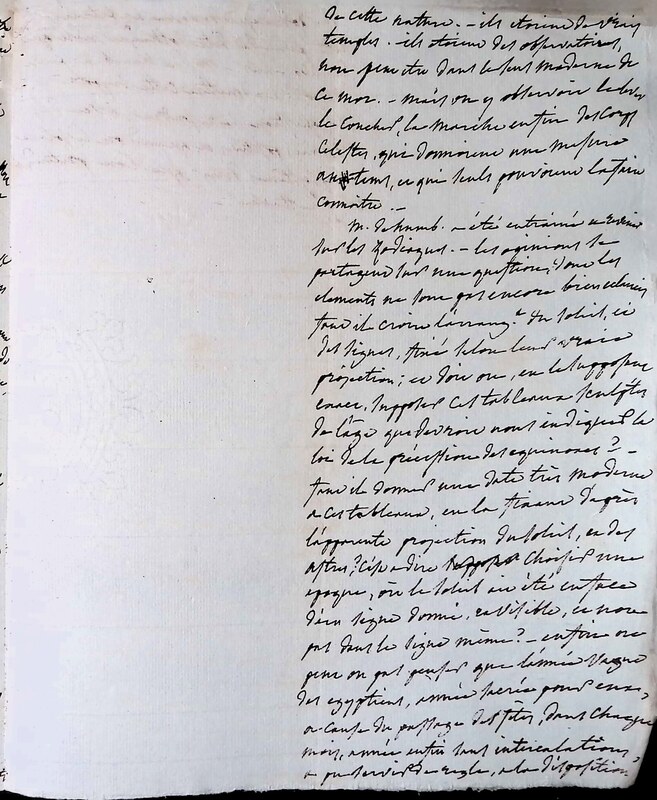 de cette nature. - ils etoient de vrais
temples. - ils etoient des observatoires,
non peut etre dans le sens moderne de
ce mot. - mais on y observoit le lever
le coucher, la marche enfin des corps
celestes, qui donnoient une mesure
au tems, et qui seuls pouvoient la faire
connoitre. -
M. de humb. a été entrainé a revenir
sur les Zodiaques. - les opinions se
partagent sur une question, dont les
elements ne sont pas encore bien eclaircis
faut il croire l'arrang.t du soleil, et
des signes, fixé selon leur vraie
projection; et doit on, en le supposant
exact, supposer ces tableaux sculptés
de l'âge que devroit nous indiquer la
loi de la précession des equinoxes? -
faut il donner une date très moderne
a ces tableaux, en la fixant d'après
l'apparente projection du soleil, et des
astres? c'est a dire choisir une
epoque, où le soleil ait été en face
d'un signe donné, et visible, et non
pas dans le signe même? - enfin
peut on pas penser que l'année vague
des egyptiens, année sacrée pour eux,
a cause du passage des fêtes, dans chaque
mois, année enfin sans intercalations,
a pu servir de regle, a la disposition